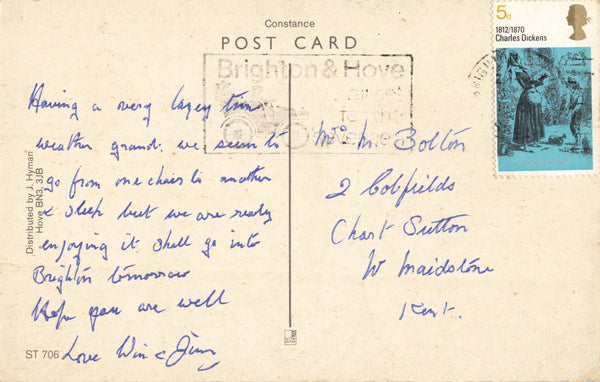 Constance
POST CARD
5d
1812/1870
Charles Dickens
Brighton & Hove
Having a very lazy time
weather grand. we seem to
go from one chair to another
& sleep but we are really
enjoying it. Shall go into
Brighton tomorrow
Hope you are well
Love Win & Jim
Mrs M. Bolton
2 Cobfields
Chart Sutton
W Maidstone
Kent.
Distributed by J. Hyman
Hove BN3, 3JB
ST 706